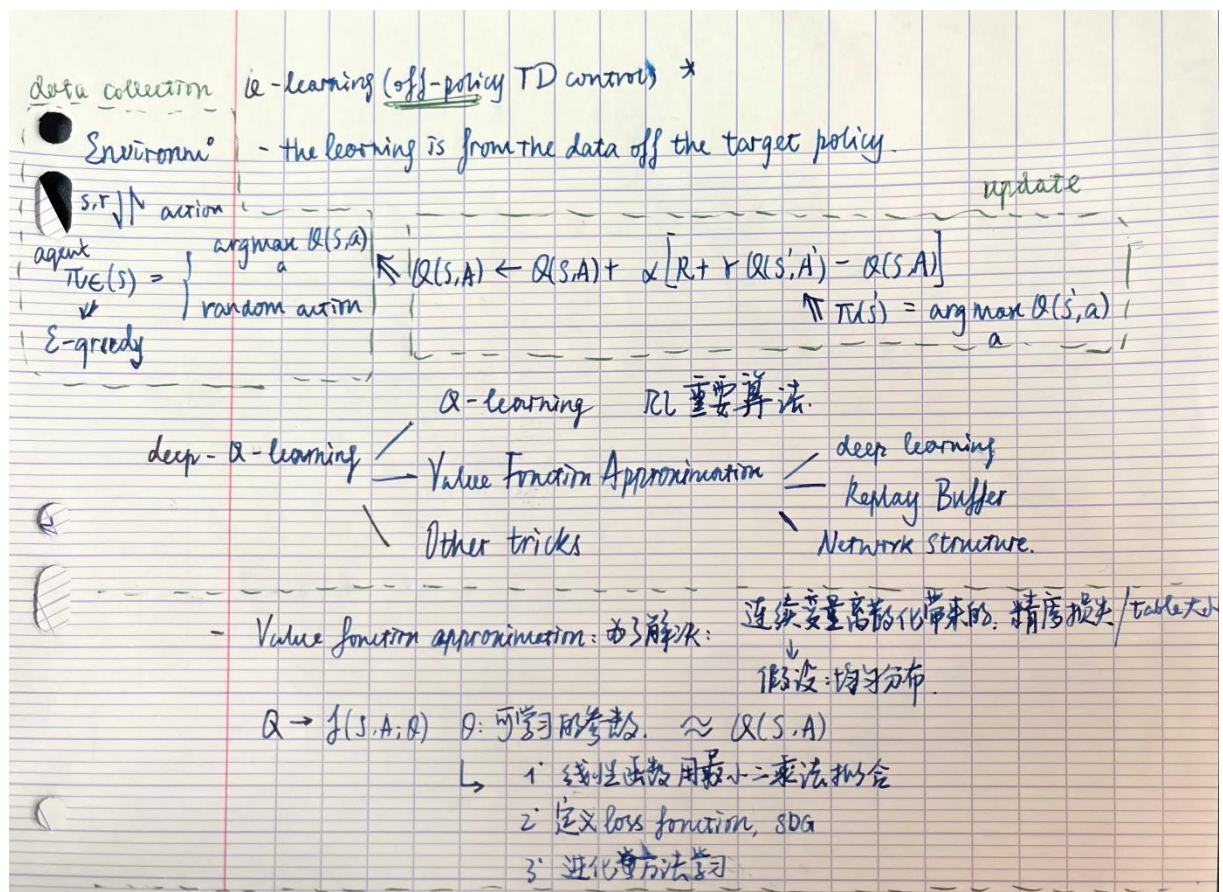 data collection
Q-learning (off-policy TD control) *
Environm°
- the learning is from the data off the target policy.
s,r action
update
agent
πϵ(s) = argmax Q(s,a)
a
random action
ε-greedy
Q(S,A) ← Q(S,A) + α[R + γ Q(S',A') - Q(S,A)]
⇑ π(s') = argmax Q(s',a)
a
Q-learning RL 重要算法.
deep-Q-learning
Value Fonction Approximation
deep learning
Replay Buffer
Network structure.
Other tricks
- Value fonction approximation: 为了解决: 连续变量离散化带来的. 精度损失/table大小
↓
假设:均匀分布.
Q → f(S,A;θ) θ: 可学习的参数. ≈ Q(S,A)
↳ 1° 线性函数用最小二乘法拟合
2° 定义loss fonction, SDG
3° 进化方法学习